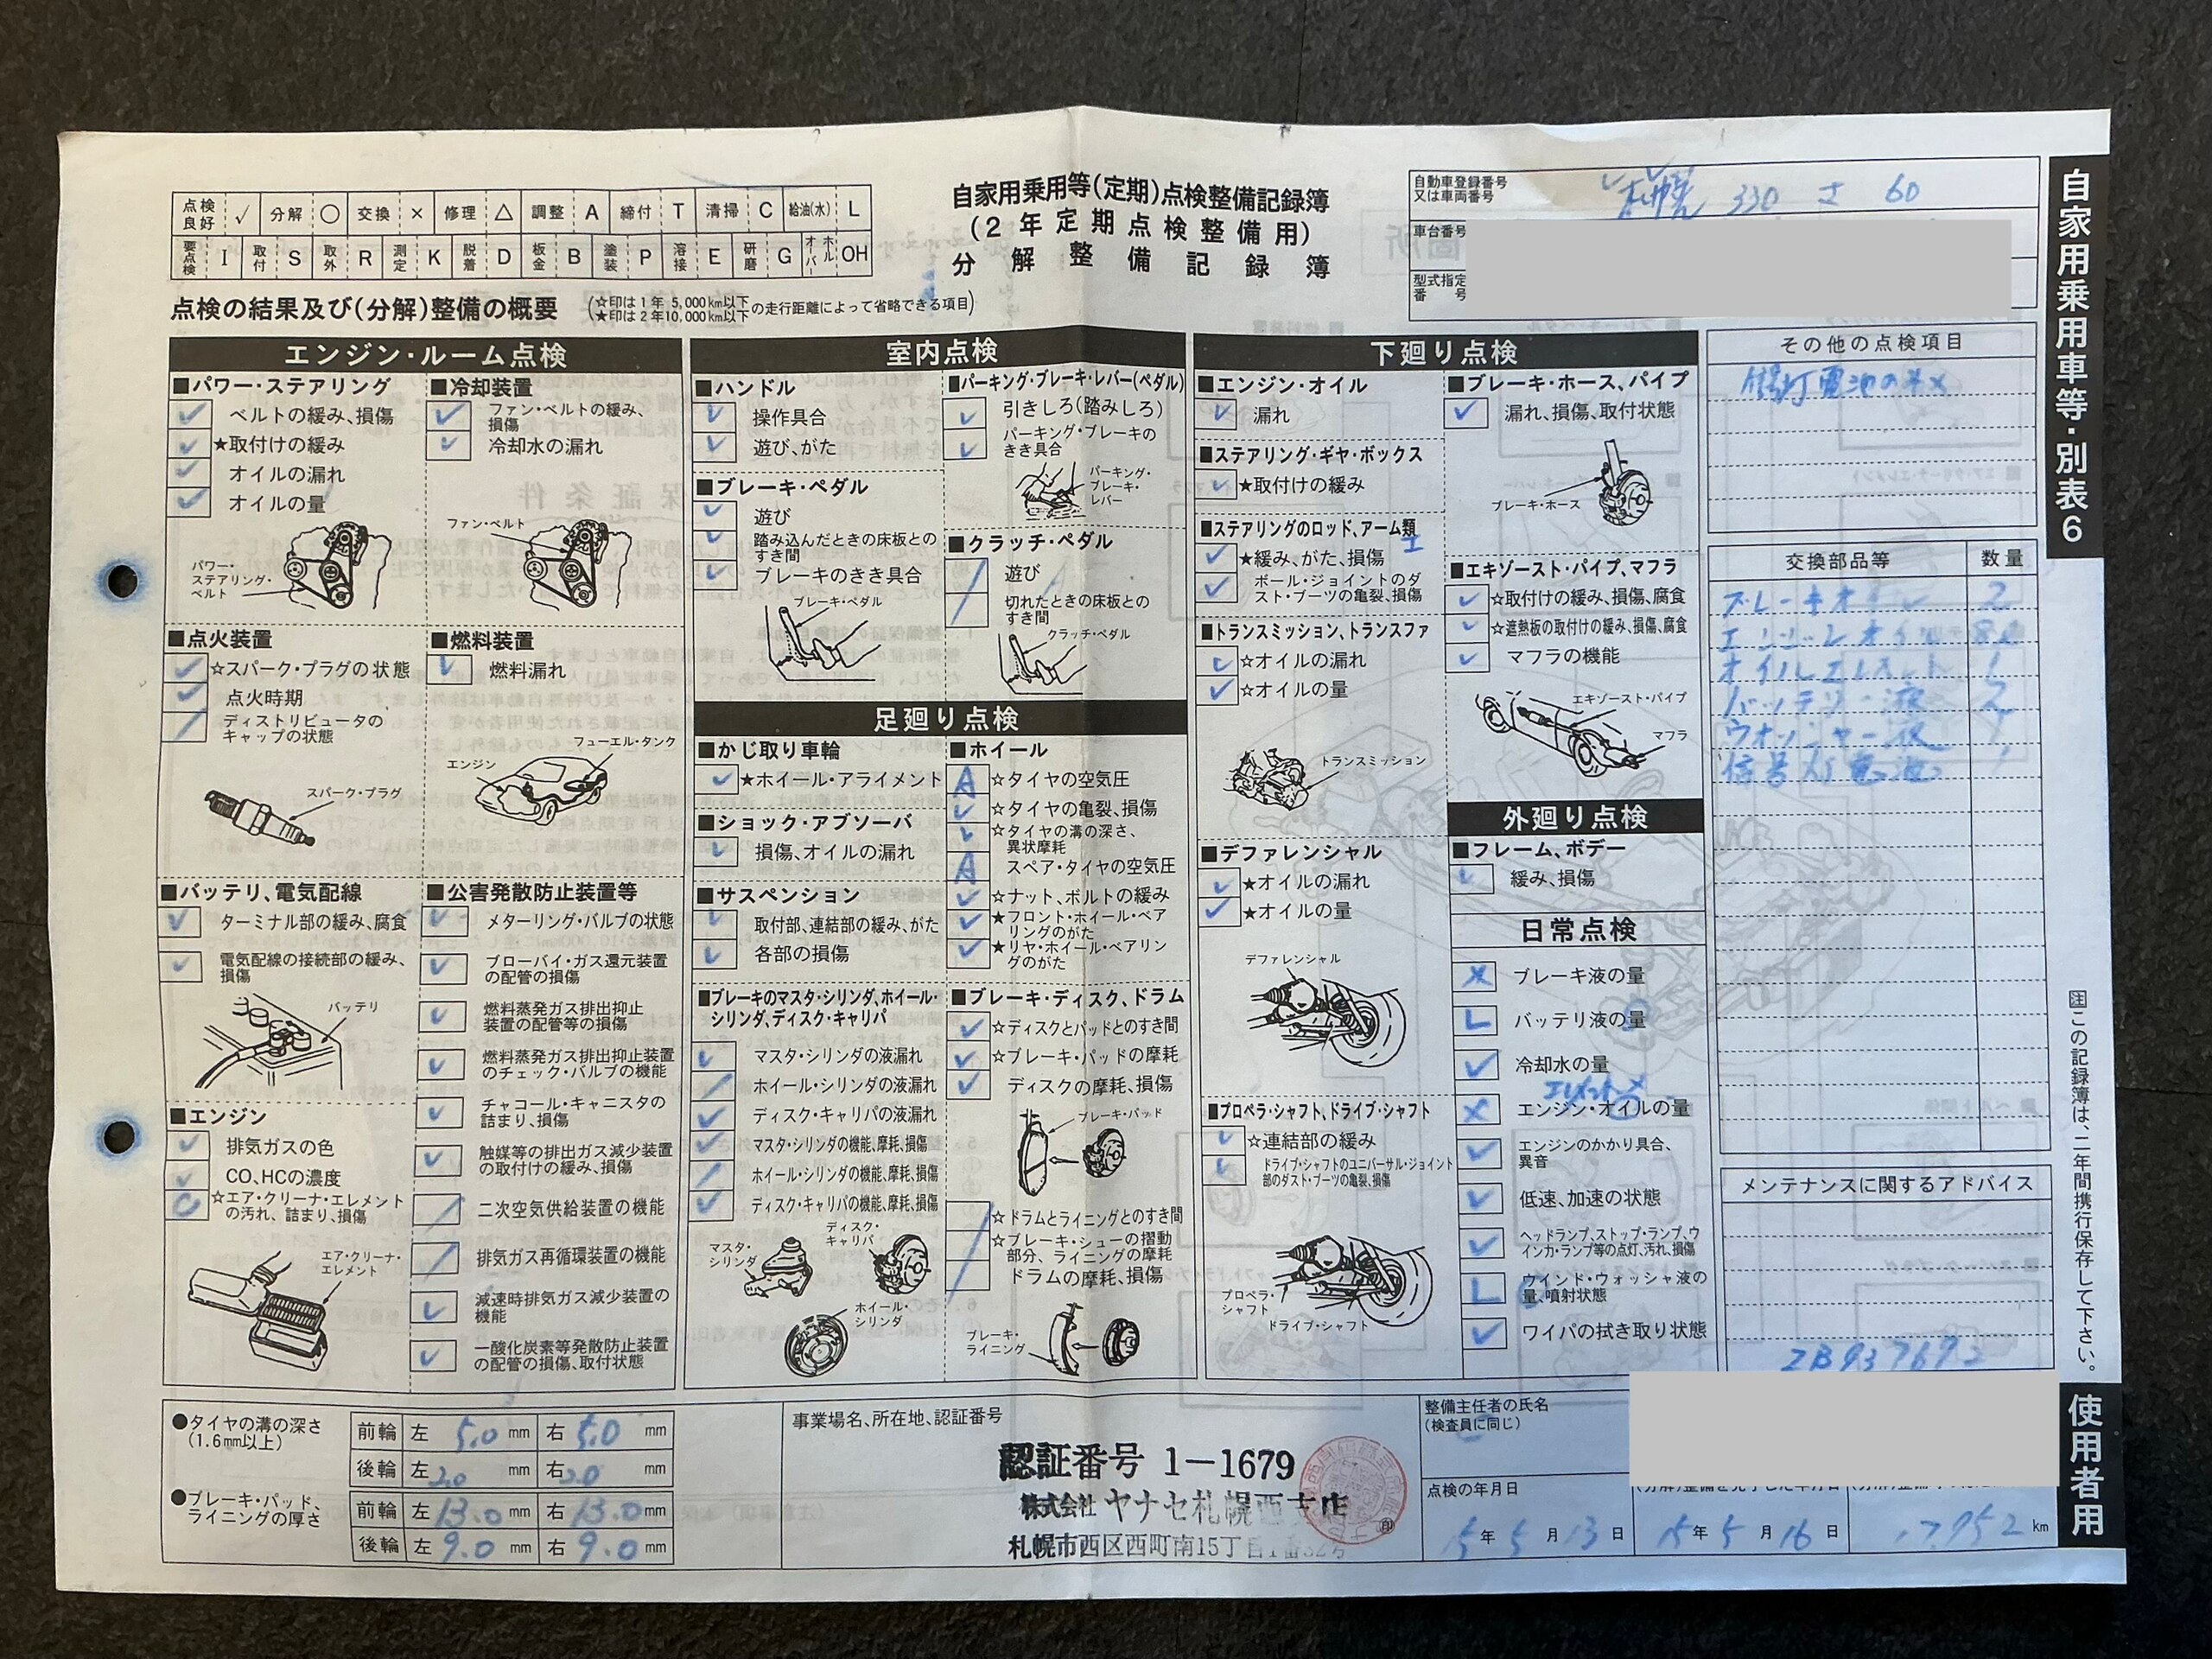 点検良好 ✓ 分解 ○ 交換 × 修理 △ 調整 A 締付 T 清掃 C 給油(水) L
要点検 I 取付 S 取外 R 測定 K 脱着 D 板金 B 塗装 P 溶接 E 研磨 G オーバーホール OH
自家用乗用等(定期)点検整備記録簿
(2年定期点検整備用)
分解整備記録簿
自動車登録番号
又は車両番号
札幌 330 さ 60
車台番号
型式指定
番号
点検の結果及び(分解)整備の概要
(☆印は1年 5,000km以下
★印は2年10,000km以下
の走行距離によって省略できる項目)
エンジン・ルーム点検
■パワー・ステアリング
✓ ベルトの緩み、損傷
✓ ★取付けの緩み
✓ オイルの漏れ
✓ オイルの量
パワー・
ステアリング・
ベルト
■冷却装置
✓ ファン・ベルトの緩み、
損傷
✓ 冷却水の漏れ
ファン・ベルト
■点火装置
✓ ☆スパーク・プラグの状態
✓ 点火時期
/ ディストリビュータの
キャップの状態
スパーク・プラグ
■燃料装置
✓ 燃料漏れ
フューエル・タンク
エンジン
■バッテリ、電気配線
✓ ターミナル部の緩み、腐食
✓ 電気配線の接続部の緩み、
損傷
バッテリ
■公害発散防止装置等
✓ メターリング・バルブの状態
✓ ブローバイ・ガス還元装置
の配管の損傷
✓ 燃料蒸発ガス排出抑止
装置の配管等の損傷
✓ 燃料蒸発ガス排出抑止装置
のチェック・バルブの機能
✓ チャコール・キャニスタの
詰まり、損傷
✓ 触媒等の排出ガス減少装置
の取付けの緩み、損傷
/ 二次空気供給装置の機能
/ 排気ガス再循環装置の機能
✓ 減速時排気ガス減少装置の
機能
✓ 一酸化炭素等発散防止装置
の配管の損傷、取付状態
■エンジン
✓ 排気ガスの色
✓ CO、HCの濃度
C ☆エア・クリーナ・エレメント
の汚れ、詰まり、損傷
エア・クリーナ・
エレメント
室内点検
■ハンドル
✓ 操作具合
✓ 遊び、がた
■ブレーキ・ペダル
✓ 遊び
✓ 踏み込んだときの床板との
すき間
✓ ブレーキのきき具合
ブレーキ・ペダル
■パーキング・ブレーキ・レバー(ペダル)
✓ 引きしろ(踏みしろ)
✓ パーキング・ブレーキの
きき具合
パーキング・
ブレーキ・
レバー
■クラッチ・ペダル
/ 遊び
/ 切れたときの床板との
すき間
クラッチ・ペダル
足廻り点検
■かじ取り車輪
✓ ★ホイール・アライメント
■ショック・アブソーバ
✓ 損傷、オイルの漏れ
■サスペンション
✓ 取付部、連結部の緩み、がた
✓ 各部の損傷
■ブレーキのマスタ・シリンダ、ホイール・
シリンダ、ディスク・キャリパ
✓ マスタ・シリンダの液漏れ
/ ホイール・シリンダの液漏れ
✓ ディスク・キャリパの液漏れ
✓ マスタ・シリンダの機能、摩耗、損傷
/ ホイール・シリンダの機能、摩耗、損傷
✓ ディスク・キャリパの機能、摩耗、損傷
マスタ・
シリンダ
ディスク・
キャリパ
ホイール・
シリンダ
■ホイール
A ☆タイヤの空気圧
✓ ☆タイヤの亀裂、損傷
✓ ☆タイヤの溝の深さ、
異状摩耗
A スペア・タイヤの空気圧
✓ ☆ナット、ボルトの緩み
✓ ★フロント・ホイール・ベア
リングのがた
✓ ★リヤ・ホイール・ベアリン
グのがた
■ブレーキ・ディスク、ドラム
✓ ☆ディスクとパッドとのすき間
✓ ☆ブレーキ・パッドの摩耗
✓ ディスクの摩耗、損傷
ブレーキ・パッド
/ ☆ドラムとライニングとのすき間
☆ブレーキ・シューの摺動
部分、ライニングの摩耗
ドラムの摩耗、損傷
ブレーキ・
ライニング
下廻り点検
■エンジン・オイル
✓ 漏れ
■ステアリング・ギヤ・ボックス
✓ ★取付けの緩み
■ステアリングのロッド、アーム類
✓ ★緩み、がた、損傷
✓ ボール・ジョイントのダ
スト・ブーツの亀裂、損傷
■トランスミッション、トランスファ
✓ ☆オイルの漏れ
✓ ☆オイルの量
トランスミッション
■デファレンシャル
✓ ★オイルの漏れ
✓ ★オイルの量
デファレンシャル
■プロペラ・シャフト、ドライブ・シャフト
✓ ☆連結部の緩み
✓ ドライブ・シャフトのユニバーサル・ジョイント
部のダスト・ブーツの亀裂、損傷
プロペラ・
シャフト
ドライブ・シャフト
■ブレーキ・ホース、パイプ
✓ 漏れ、損傷、取付状態
ブレーキ・ホース
■エキゾースト・パイプ、マフラ
✓ ☆取付けの緩み、損傷、腐食
✓ ☆遮熱板の取付けの緩み、損傷、腐食
✓ マフラの機能
エキゾースト・パイプ
マフラ
外廻り点検
■フレーム、ボデー
✓ 緩み、損傷
日常点検
× ブレーキ液の量
L バッテリ液の量
✓ 冷却水の量
エレメント ×
× エンジン・オイルの量
✓ エンジンのかかり具合、
異音
✓ 低速、加速の状態
✓ ヘッドランプ、ストップ・ランプ、ウ
インカ・ランプ等の点灯、汚れ、損傷
L ウインド・ウォッシャ液の
量、噴射状態
✓ ワイパの拭き取り状態
その他の点検項目
交換部品等 数量
ブレーキオイル 2
エンジンオイル
オイルエレメント 1
バッテリー液 2
ウオッシャー液 1
信号灯電池 1
メンテナンスに関するアドバイス
自家用乗用車等・別表6
注この記録簿は、二年間携行保存して下さい。
使用者用
●タイヤの溝の深さ
(1.6mm以上)
前輪 左 5.0 mm 右 5.0 mm
後輪 左 mm 右 mm
●ブレーキ・パッド、
ライニングの厚さ
前輪 左 13.0 mm 右 13.0 mm
後輪 左 9.0 mm 右 9.0 mm
事業場名、所在地、認証番号
認証番号 1-1679
株式会社 ヤナセ札幌西支店
札幌市西区西町南15丁目1番32号
整備主任者の氏名
(検査員に同じ)
点検の年月日
15年 5月 13日
15年 5月 16日
17952 km